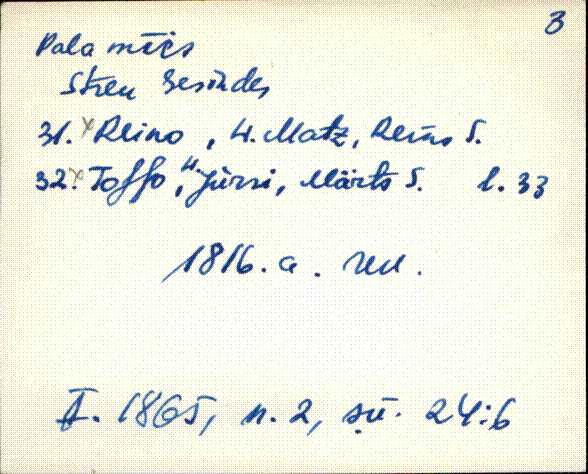 3
Pala mõis
Streu Gesindes
31. Reino, W. Matz, Reins S.
32. Toffo, W. Jürri, Märts S. l. 33
1816. a. rev.
F. 1865, n. 2, sü. 24:6